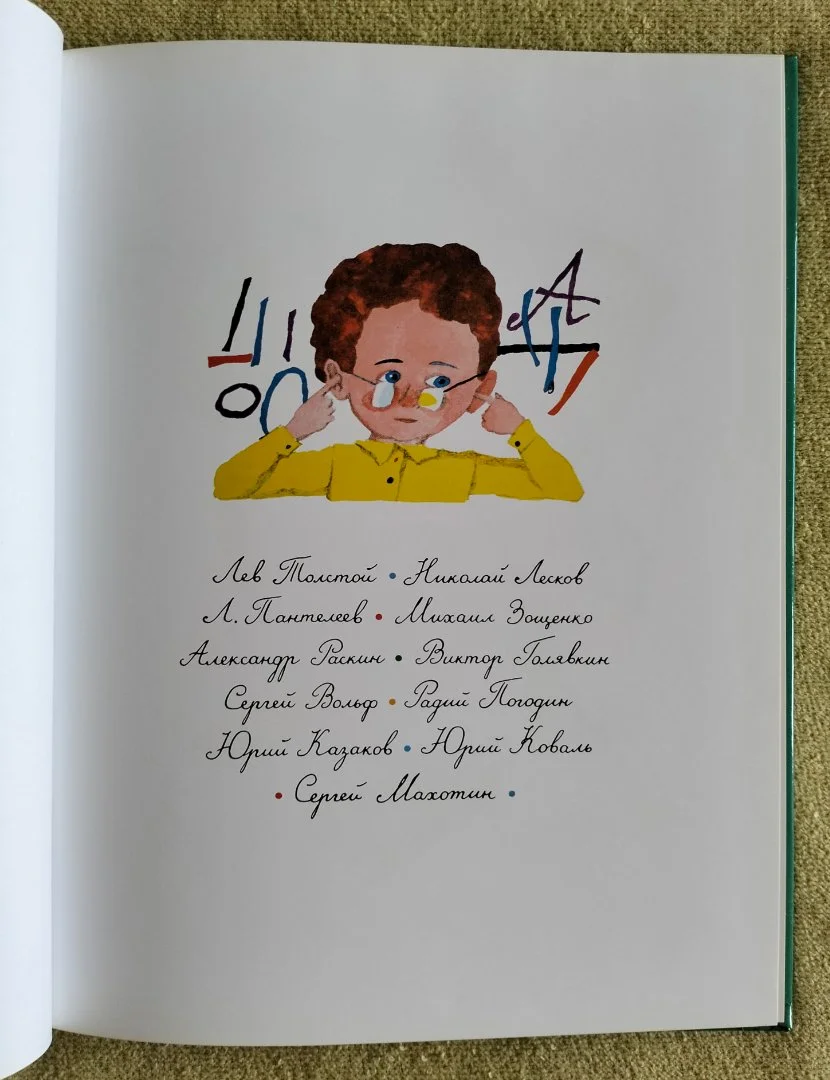 Лев Толстой • Николай Лесков
Л. Пантелеев • Михаил Зощенко
Александр Раскин • Виктор Голявкин
Сергей Вольф • Радий Погодин
Юрий Казаков • Юрий Коваль
• Сергей Махотин •